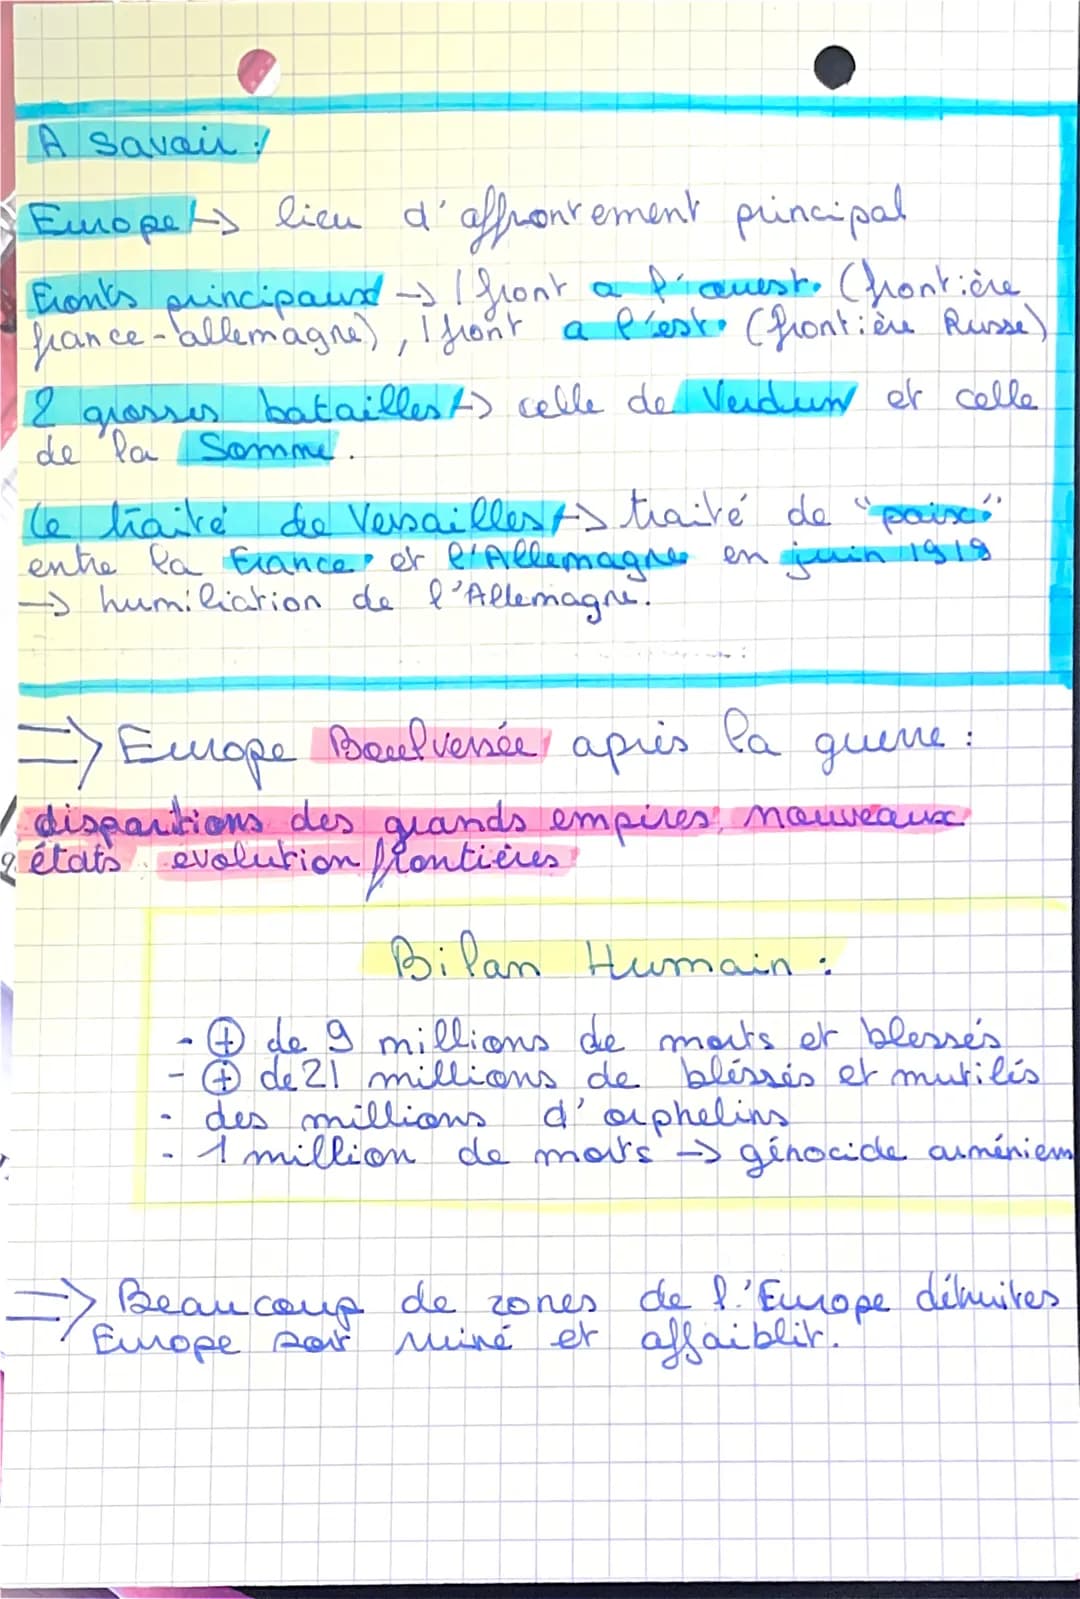 A savoir :
Europe → lieu d'affrontement principal
Fronts principaux → 1 front a l'ouest. (frontière
france-allemagne), 1 front a l'est. (frontière Russe)
2 grosses batailles → celle de Verdun et celle
de la Somme.
Le traité de Versailles → traité de "paix"
entre la France et l'Allemagne en juin 1919
→ humiliation de l'Allemagne.
⇒ Europe Boulversée après la guerre :
dispartitions des grands empires, nouveaux
états evolution frontières
Bilan Humain :
- ⊕ de 9 millions de morts et blessés
- ⊕ de 21 millions de bléssés et mutilés
- des millions d'orphelins
- 1 million de morts → génocide arméniens
⇒ Beaucoup de zones de l'Europe détruites
Europe sort ruiné et affaiblit.